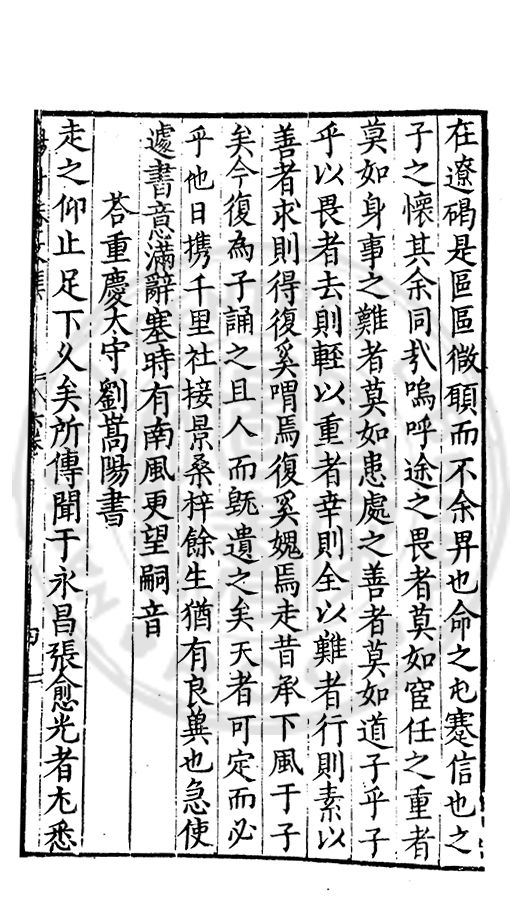 在遼碣是區區微願而不余畀也命之屯蹇信也之
子之懷其余同㢤嗚呼途之畏者莫如宦任之重者
莫如身事之難者莫如患處之善者莫如道子乎子
乎以畏者去則輕以重者幸則全以難者行則素以
善者求則得復奚喟焉復奚媿焉走昔承下風于子
矣今復為子誦之且人而旣遺之矣天者可定而必
乎他日携千里社接景桑梓餘生猶有良冀也急使
遽書意滿辭塞時有南風更望嗣音
荅重慶太守劉嵩陽書
走之仰止足下乆矣所傳聞于永昌張愈光者尢悉